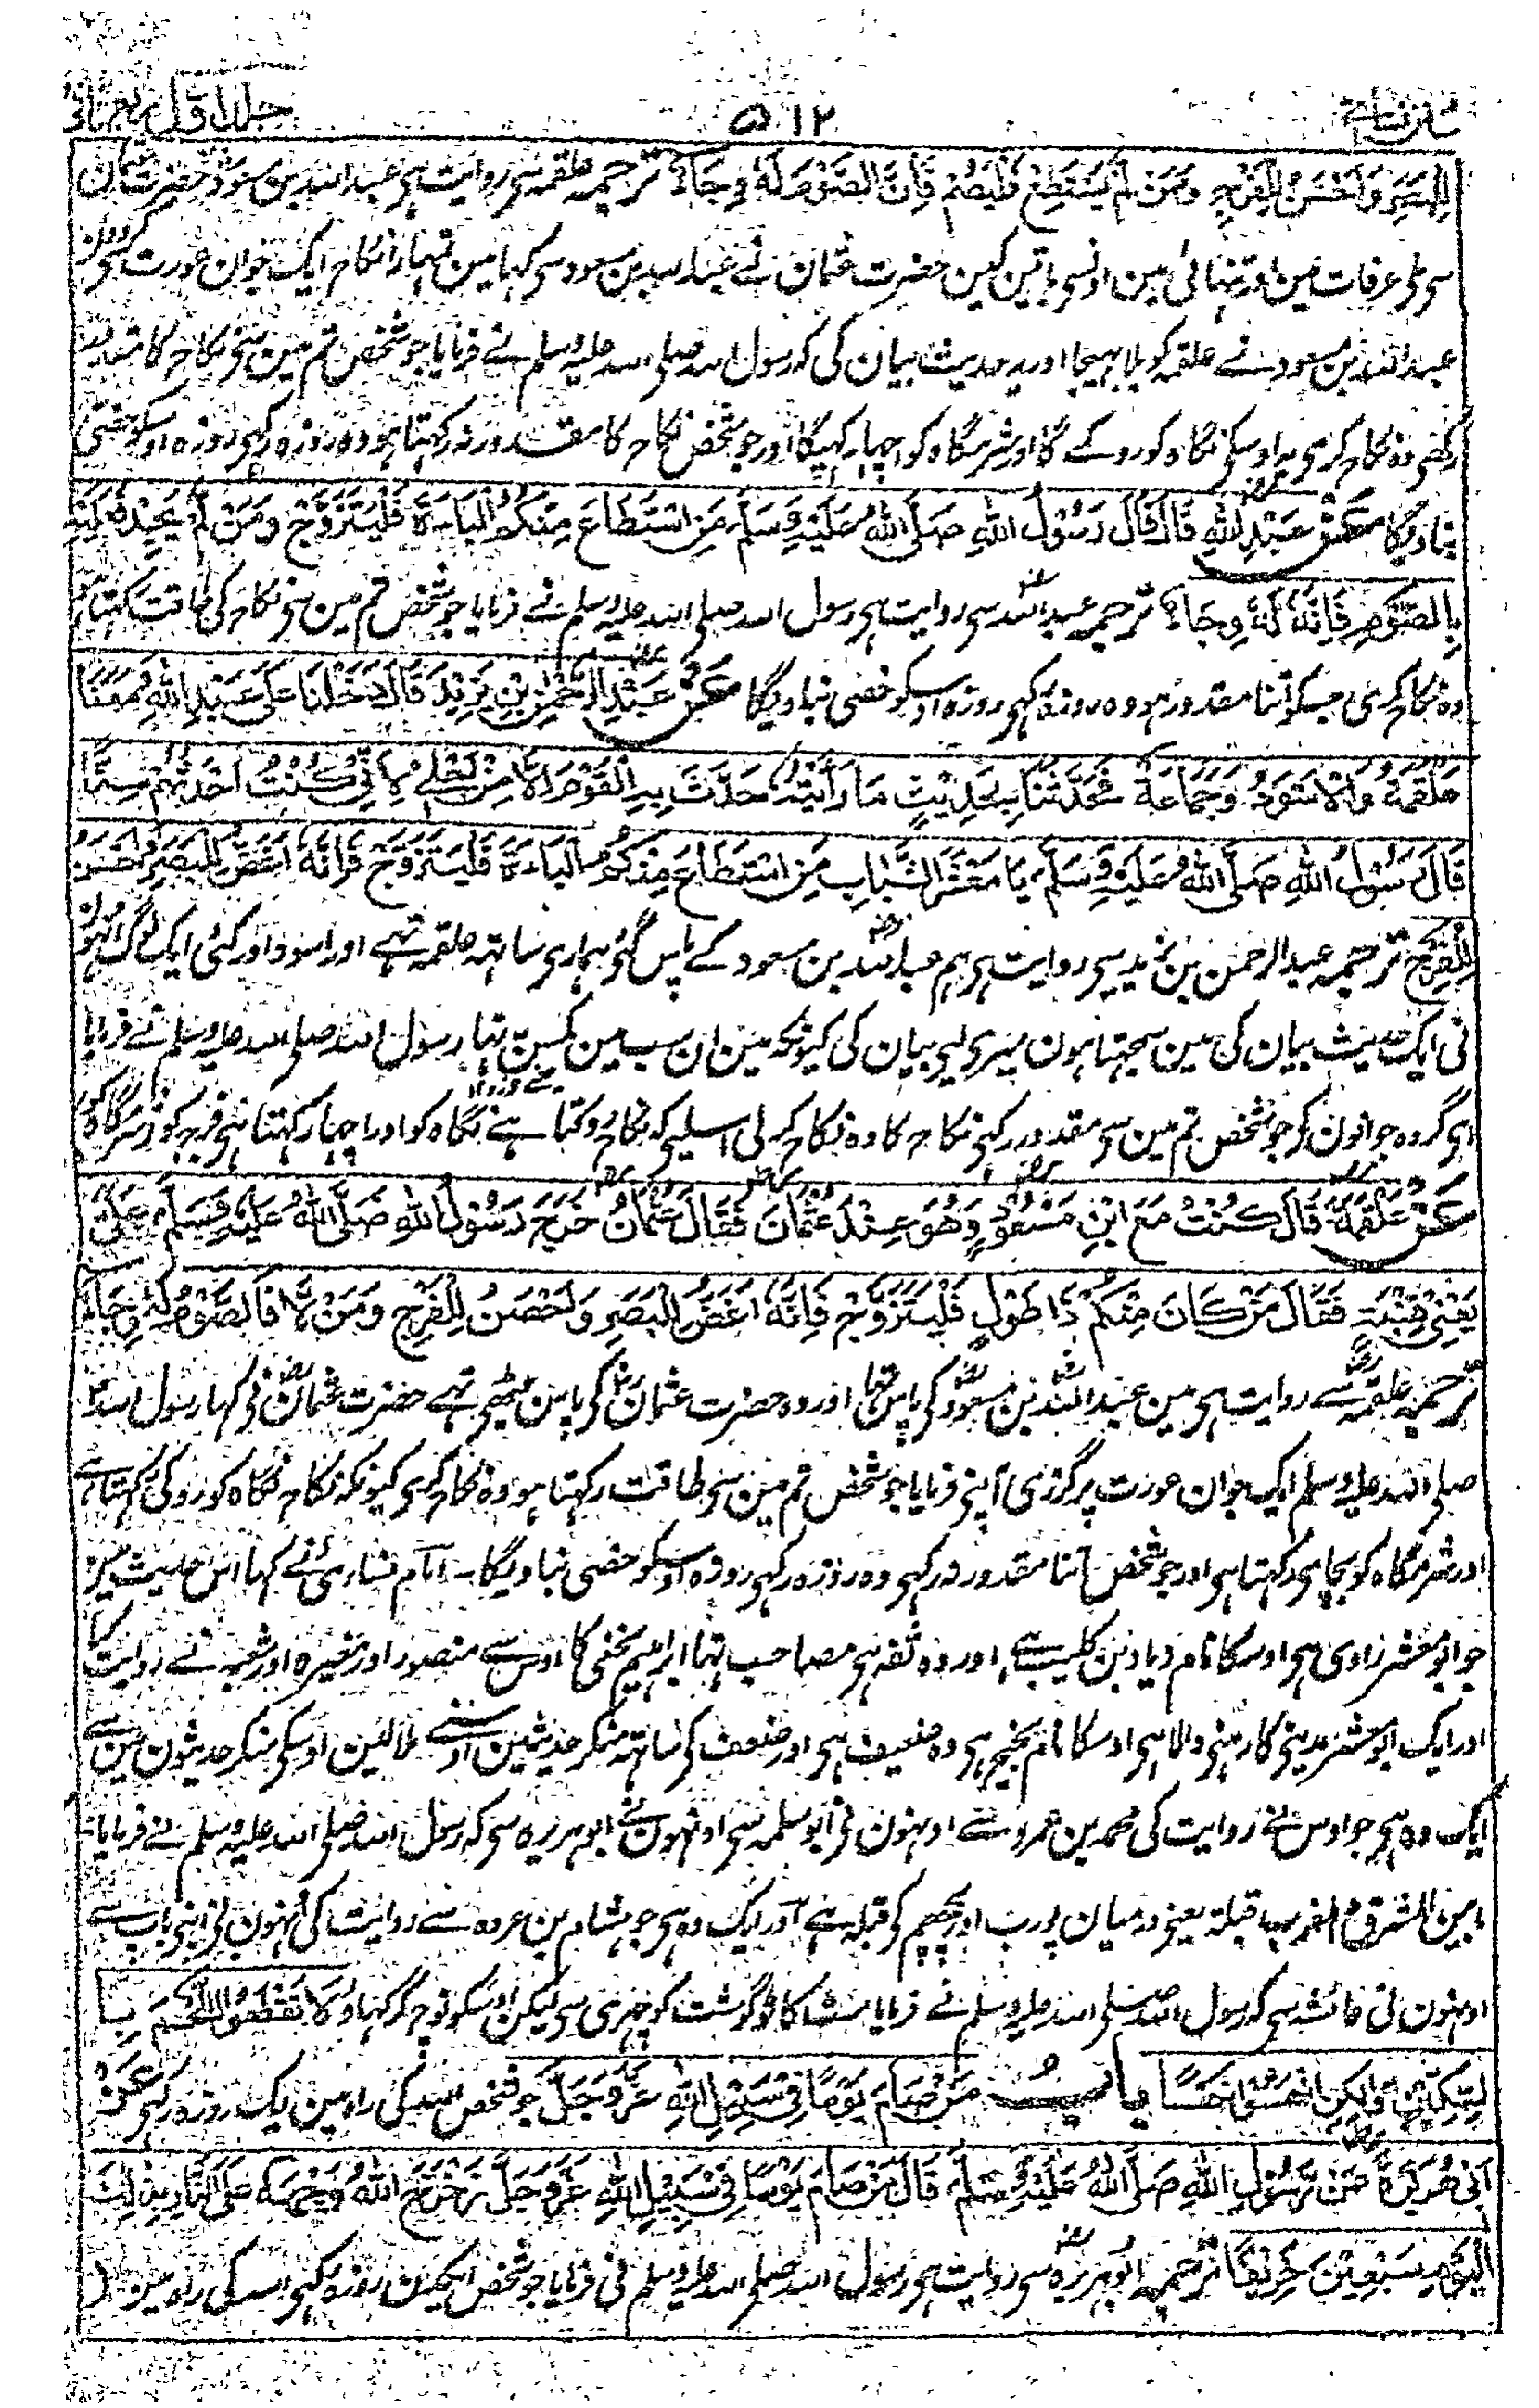 سنن نسائی ۵۱۲ جلد اول
لِلْبَصَرِ وَاَحْصَنُ لِلْفَرْجِ وَمَنْ لَّمْ يَسْتَطِعْ فَلْيَصُمْ فَاِنَّ الصَّوْمَ لَهٗ وِجَاءٌ ترجمہ علقمہ سی روایت ہی عبد اللہ بن مسعود حضرت عثمان
سی ملی عرفات مین اور تنہائی مین اونسی باتین کین حضرت عثمان نے عبد اللہ بن مسعود سی کہا مین تمہارا نکاح ایک جوان عورت سی کردون
عبد اللہ بن مسعود نے علقمہ کو بلا بہیجا اور یہ حدیث بیان کی کہ رسول اللہ صلی اللہ علیہ وسلم نے فرمایا جو شخص تم مین سی نکاح کا مقدور
رکھی وہ نکاح کری یہ اوسکی نگاہ کو روکے گا اور شرمگاہ کو اچہا رکہیگا اور جو شخص نکاح کا مقدور نہ رکہتا ہو وہ روزہ رکہی روزہ اوسکو خصی
بنا دیگا عَنْ عَبْدِ اللهِ قَالَ قَالَ رَسُوْلُ اللهِ صَلَّى اللهُ عَلَيْهِ وَسَلَّمَ مَنِ اسْتَطَاعَ مِنْكُمُ الْبَاءَةَ فَلْيَتَزَوَّجْ وَمَنْ لَّمْ يَجِدْ فَعَلَيْهِ
بِالصَّوْمِ فَاِنَّهٗ لَهٗ وِجَاءٌ ترجمہ عبد اللہ سی روایت ہی رسول اللہ صلی اللہ علیہ وسلم نے فرمایا جو شخص تم مین سی نکاح کی طاقت رکہتا ہو
وہ نکاح کری جسکو اتنا مقدور نہو وہ روزہ رکہی روزہ اوسکو خصی بنا دیگا عَنْ عَبْدِ الرَّحْمٰنِ بْنِ يَزِيْدَ قَالَ دَخَلْنَا عَلٰى عَبْدِ اللهِ وَمَعَنَا
عَلْقَمَةُ وَالْاَسْوَدُ وَجَمَاعَةٌ فَحَدَّثَنَا بِحَدِيْثٍ مَا رَاَيْتُهٗ حَدَّثَ بِهِ الْقَوْمَ اِلَّا مِنْ اَجْلِيْ لِاَنِّيْ كُنْتُ اَحْدَثَهُمْ سِنًّا
قَالَ رَسُوْلُ اللهِ صَلَّى اللهُ عَلَيْهِ وَسَلَّمَ يَا مَعْشَرَ الشَّبَابِ مَنِ اسْتَطَاعَ مِنْكُمُ الْبَاءَةَ فَلْيَتَزَوَّجْ فَاِنَّهٗ اَغَضُّ لِلْبَصَرِ وَاَحْصَنُ
لِلْفَرْجِ ترجمہ عبد الرحمٰن بن یزید سی روایت ہی ہم عبد اللہ بن مسعود کے پاس گئی ہماری ساتہہ علقمہ تہے اور اسود اور کئی ایک لوگ انہون
نی ایک حدیث بیان کی مین سمجہتا ہون میری لیی بیان کی کیونکہ مین ان سب مین کمسن تہا رسول اللہ صلی اللہ علیہ وسلم نے فرمایا
ای گروہ جوانون کی جو شخص تم مین سی مقدور رکہی نکاح کا وہ نکاح کرلی اسلیی کہ نکاح روکتا ہے نگاہ کو اور اچہا رکہتا ہی فرج کو شرمگاہ کو
عَنْ عَلْقَمَةَ قَالَ كُنْتُ مَعَ ابْنِ مَسْعُوْدٍ وَهُوَ عِنْدَ عُثْمَانَ فَقَالَ عُثْمَانُ خَرَجَ رَسُوْلُ اللهِ صَلَّى اللهُ عَلَيْهِ وَسَلَّمَ عَلٰى
يَعْنِيْ فِتْيَةٍ فَقَالَ مَنْ كَانَ مِنْكُمْ ذَا طَوْلٍ فَلْيَتَزَوَّجْ فَاِنَّهٗ اَغَضُّ لِلْبَصَرِ وَاَحْصَنُ لِلْفَرْجِ وَمَنْ لَّا فَالصَّوْمُ لَهٗ وِجَاءٌ
ترجمہ علقمہ سے روایت ہی مین عبد اللہ بن مسعود کی پاس تہا اور وہ حضرت عثمان کی پاس بیٹہی تہے حضرت عثمان نی کہا رسول اللہ
صلی اللہ علیہ وسلم ایک جوان عورت پر گزری آپنی فرمایا جو شخص تم مین سی طاقت رکہتا ہو وہ نکاح کری کیونکہ نکاح نگاہ کو روکی رکہتا ہے
اور شرمگاہ کو بچای رکہتا ہی اور جو شخص اتنا مقدور نہ رکہی وہ روزہ رکہی روزہ اوسکو خصی بنا دیگا۔ امام نسائی نے کہا اس حدیث مین
جو ابو معشر راوی ہی اوسکا نام زیاد بن کلیب ہے اور وہ ثقہ ہی مصاحب تہا ابراہیم نخعی کا اوس سے منصور اور مغیرہ اور شعبہ نے روایت کیا
اور ایک ابو معشر مدینی کا رہنی والا ہی اوسکا نام نجیح ہی وہ ضعیف ہی اور ضعف کی ساتہہ منکر حدیثین اوسنے ملالین اوسکی منکر حدیثون مین سے
ایک وہ ہی جو اوس نے روایت کی محمد بن عمرو سے اونہون نی ابو سلمہ سی اونہون نے ابوہریرہ سی کہ رسول اللہ صلی اللہ علیہ وسلم نے فرمایا
ما بین المشرق والمغرب قبلۃ یعنی درمیان پورب اور پچہم کی قبلہ ہے اور ایک وہ ہی جو ہشام بن عروہ سے روایت کی اونہون نی اپنی باپ سے
اونہون نی عائشہ سی کہ رسول اللہ صلی اللہ علیہ وسلم نے فرمایا مت کاٹو گوشت کو چہری سی لیکن اوسکو نوچ کر کہاو لَا تَقْطَعُوا اللَّحْمَ بِا
لسِّكِّيْنِ وَلٰكِنِ انْهَسُوْا نَهْسًا باب مَنْ صَامَ يَوْمًا فِيْ سَبِيْلِ اللهِ عَزَّ وَجَلَّ جو شخص اللہ کی راہ مین ایک روزہ رکہی عَنْ
اَبِيْ هُرَيْرَةَ عَنْ رَّسُوْلِ اللهِ صَلَّى اللهُ عَلَيْهِ وَسَلَّمَ قَالَ مَنْ صَامَ يَوْمًا فِيْ سَبِيْلِ اللهِ عَزَّ وَجَلَّ زَحْزَحَ اللهُ وَجْهَهٗ عَنِ النَّارِ بِذٰلِكَ
الْيَوْمِ سَبْعِيْنَ خَرِيْفًا ترجمہ ابوہریرہ سی روایت ہی رسول اللہ صلی اللہ علیہ وسلم نی فرمایا جو شخص ایکدن روزہ رکہی اللہ کی راہ مین